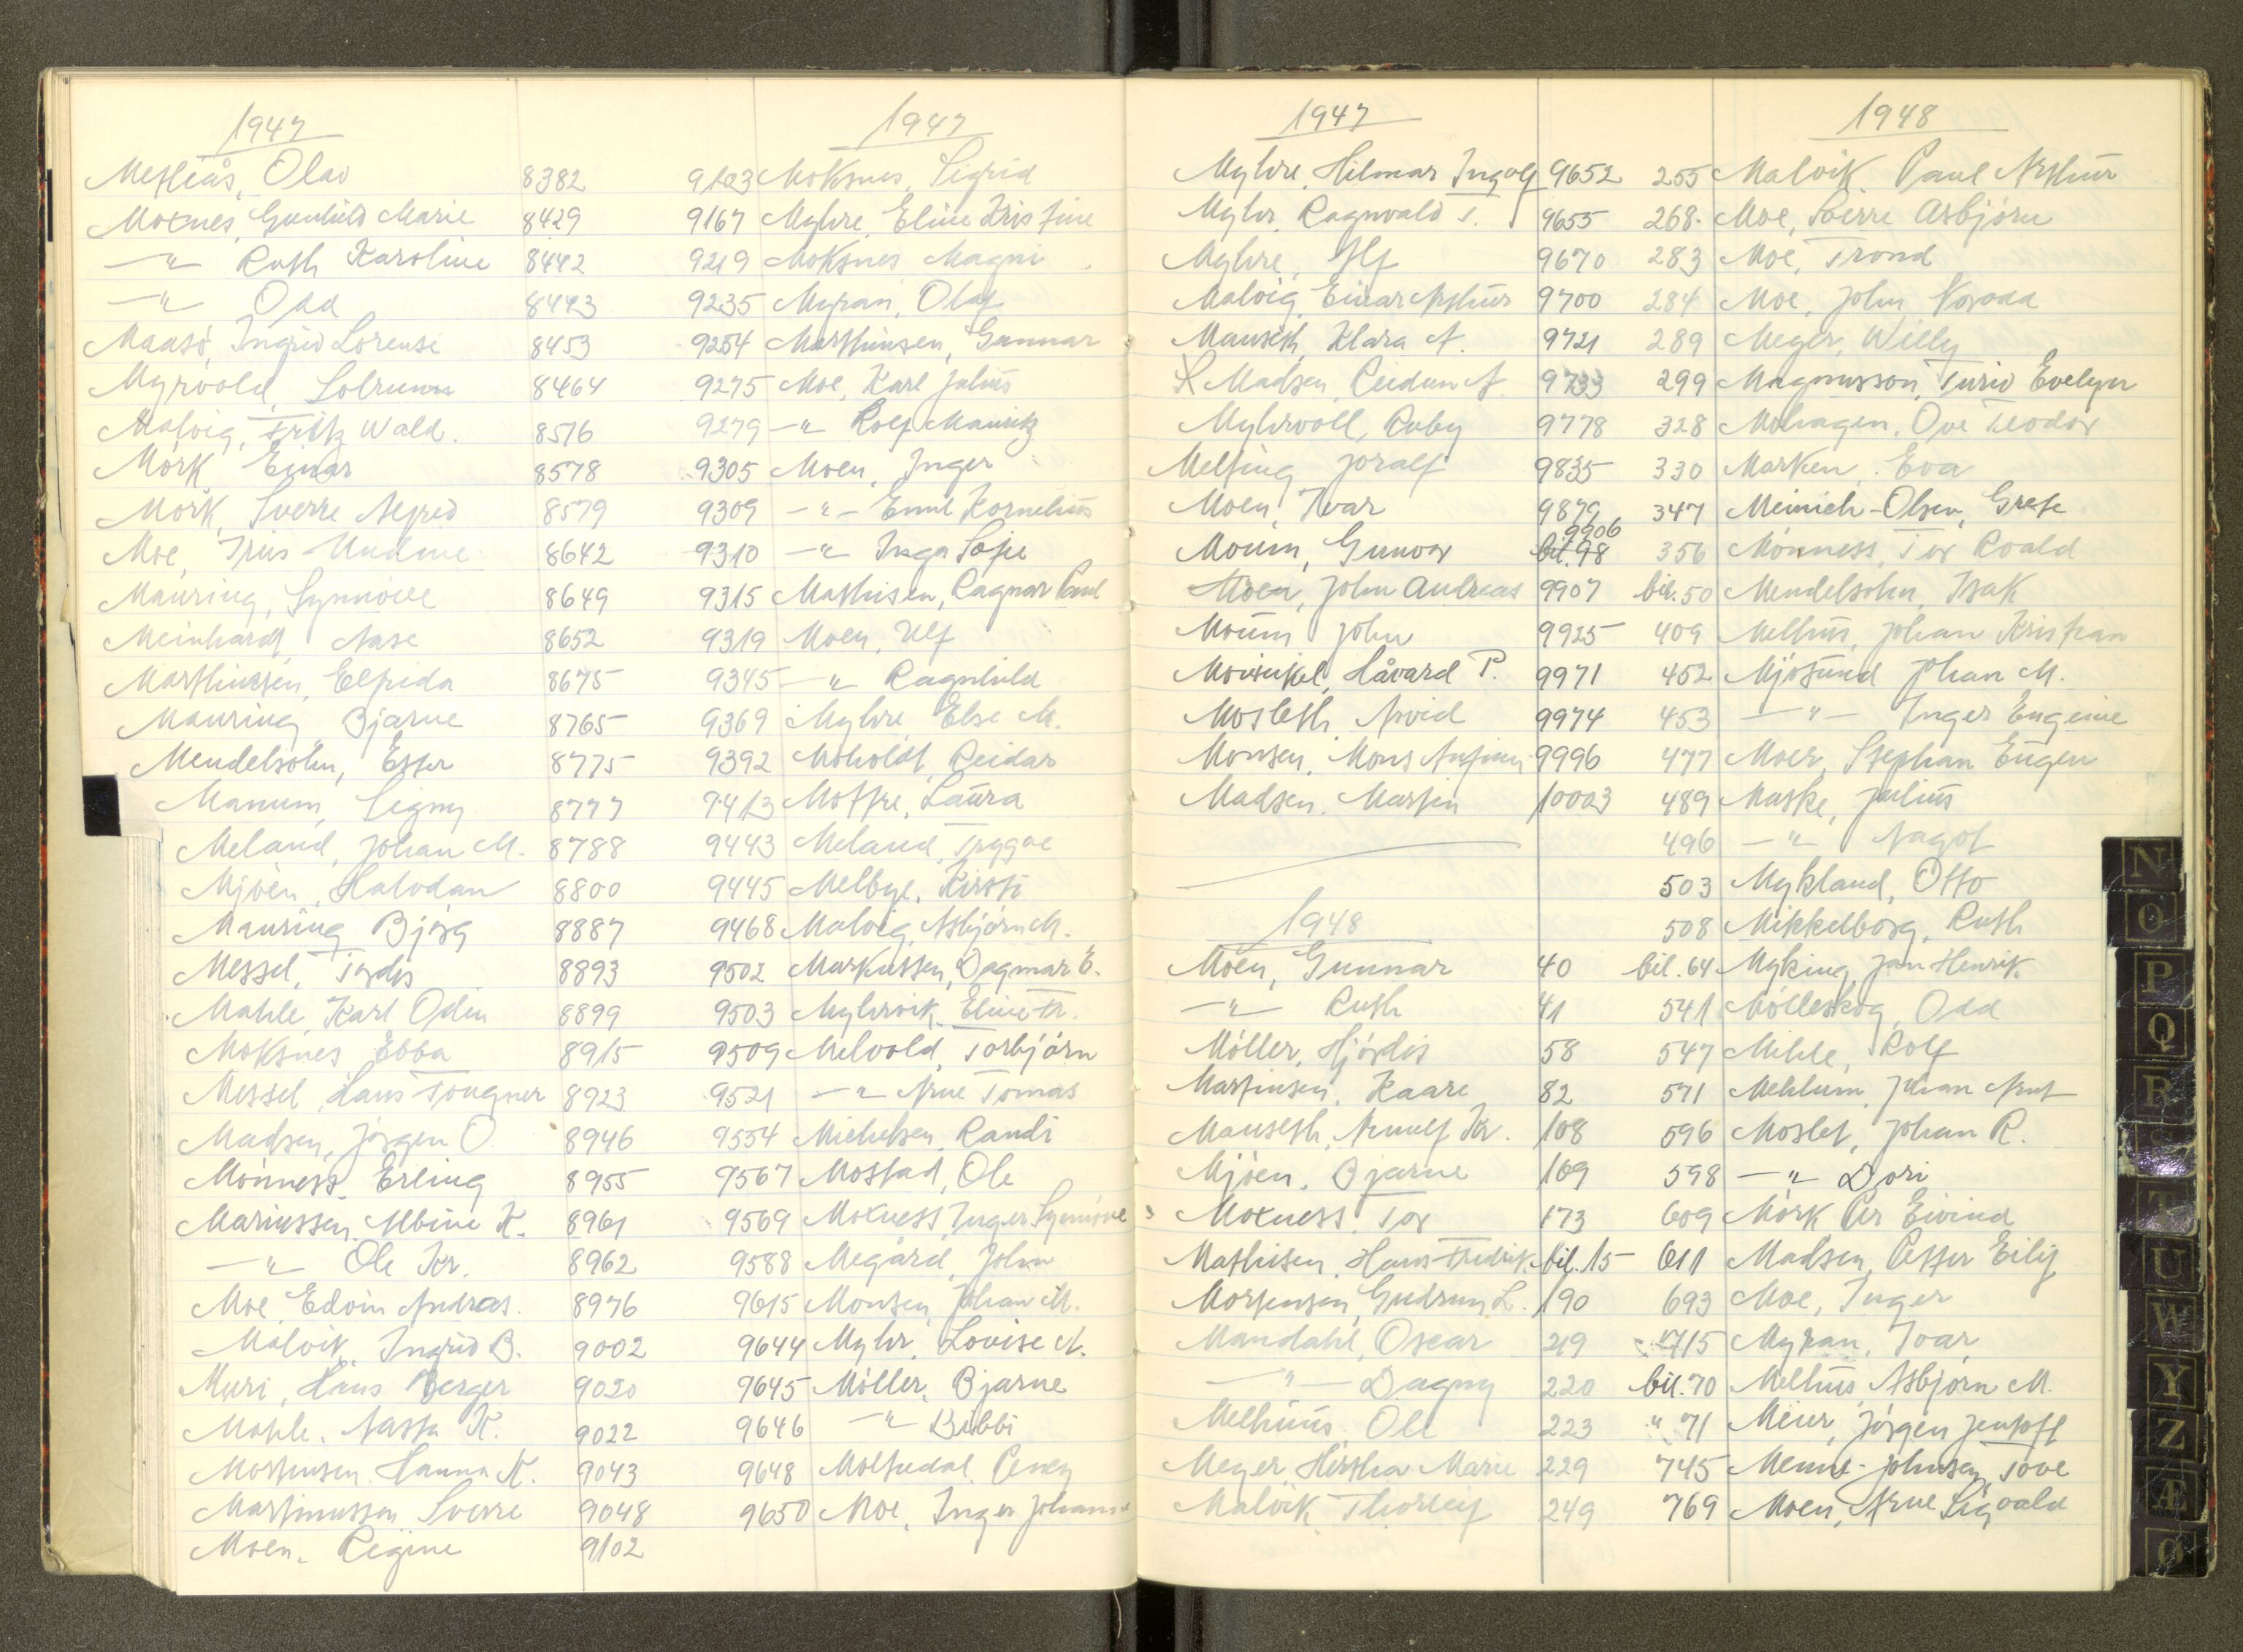 1947
Mefliås, Olav 8382
Moxnes, Gunhild Marie 8429
—"— Ruth Karoline 8442
—"— Odd 8443
Maasø, Ingrid Lorense 8453
Myrvold, Solrunn 8464
Malvig, Fritz Wald. 8576
Mørk, Einar 8578
Mørk, Sverre Alfred 8579
Moe, Iris 8642
Mauring, Synnøve 8649
Meinhardt, Aase 8652
Marthinsen, Elfrida 8675
Mauring Bjarne 8765
Mendelsohn, Ester 8775
Manum, Signy 8777
Meland, Johan M. 8788
Mjøen, Halvdan 8800
Mauring Bjørg 8887
Messel, Tordis 8893
Mahle, Karl Odin 8899
Moksnes Ebba 8915
Messel, Hans Tougner 8923
Madsen, Jørgen O. 8946
Mønness, Erling 8955
Mariussen, Albine K. 8961
—"— Ole Kr. 8962
Moe, Edvin Andreas. 8976
Malvik, Ingrid B. 9002
Muri, Hans Berger 9020
Mahle, Aasta K. 9022
Mortensen, Hanna K. 9043
Martinussen Sverre 9048
Moen, Regine 9102
1947
9103 Moksnes, Sigrid
9167 Myhre, Eline Kristine
9219 Moksnes Magni
9235 Myran, Olaf
9254 Marthinsen, Gunnar
9275 Moe, Karl Julius
9279 —"— Rolf Mauritz
9305 Moen, Inger
9309 —"— Emil Kornelius
9310 —"— Inga Sofie
9315 Mathisen, Ragnar Paul
9319 Moen, Ulf
9345 —"— Ragnhild
9369 Myhre, Else M.
9392 Moholdt, Reidar
9413 Mottre, Laura
9443 Meland, Tryggve
9445 Melbye, Kirsti
9468 Malvig, Asbjørn M.
9502 Markussen, Dagmar E.
9503 Myhrvik, Eline Fr.
9509 Melvold, Torbjørn
9521 —"— Arne Tomas
9554 Michelsen, Randi
9567 Mostad, Ole
9569 Moxness, Inger Synnøve
9588 Megård, John
9615 Monsen, Johan M.
9644 Myhr, Lovise A.
9645 Møller, Bjarne
9646 —"— Bibbi
9648 Moltudal,
9650 Moe, Inger Johanne
1947
Myhre, Hilmar Ingolf 9652
Myhr, Ragnvald T. 9655
Myhre, Alf 9670
Malvig, Einar Arthur 9700
Mauseth, Klara A. 9721
Madsen, Reidun A. 9733
Myhrvoll, Ruby 9778
Melting Joralf 9835
Moen, Ivar 9879
Moum, Gunvor 9906 bil. 98
Moen, John Andreas 9907
Moum John 9925
Mowinkel, Håvard P. 9971
Mosleth, Arvid 9974
Monsen, Mons 9996
Madsen, Martin 10003
1948
Moen, Gunnar 40
—"— Ruth 41
Møller, Hjørdis 58
Martinsen, Kaare 82
Mauseth, Arnulf Kr. 108
Mjøen, Bjarne 169
Moxness, Tor 173
Mathisen, Hans Fredrik bil. 15
Mortensen, Gudrun L. 190
Mandahl, Oscar 219
—"— Dagny 220
Melhuus, Ole 223
Meyer Hertha Marie 229
Malvik Thorleif 249
1948
255 Malvik, Paul Arthur
268. Moe, Sverre Asbjørn
283 Moe, Trond
284 Moe, John
289 Meyer, Willy
299 Magnusson, Turid Evelyn
328 Mohagen, Ove Teodor
330 Marken, Eva
347 Meinich-Olsen, Grete
356 Mønness, Tor Roald
bil. 50 Mendelsohn, Isak
409 Melhus, Johan Kristian
452 Mjøsund Johan M.
453 —"— Inger Eugenie
477 Moer, Stephan Eugen
489 Maske, Julius
496 —"— Aagot
503 Mykland, Otto
508 Mikkelborg, Ruth
bil. 64 Myking, Jan Henrik
541 Mølleskog, Odd
547 Mihle, Rolf
571 Mehlum, Johan Arnt
596 Moslet, Johan R.
598 —"— Dori
609 Mørk Per Eivind
611 Madsen, Petter Eilif
693 Moe, Inger
715 Myran, Ivar
bil. 70 Melhus Asbjørn M.
" 71 Meier, Jørgen Jentoft
745 Menne-Johnsen, Tove
769 Moen, Arne Sigvald
N
O
P
Q
R
T
U
W
Y
Z
Æ
Ø